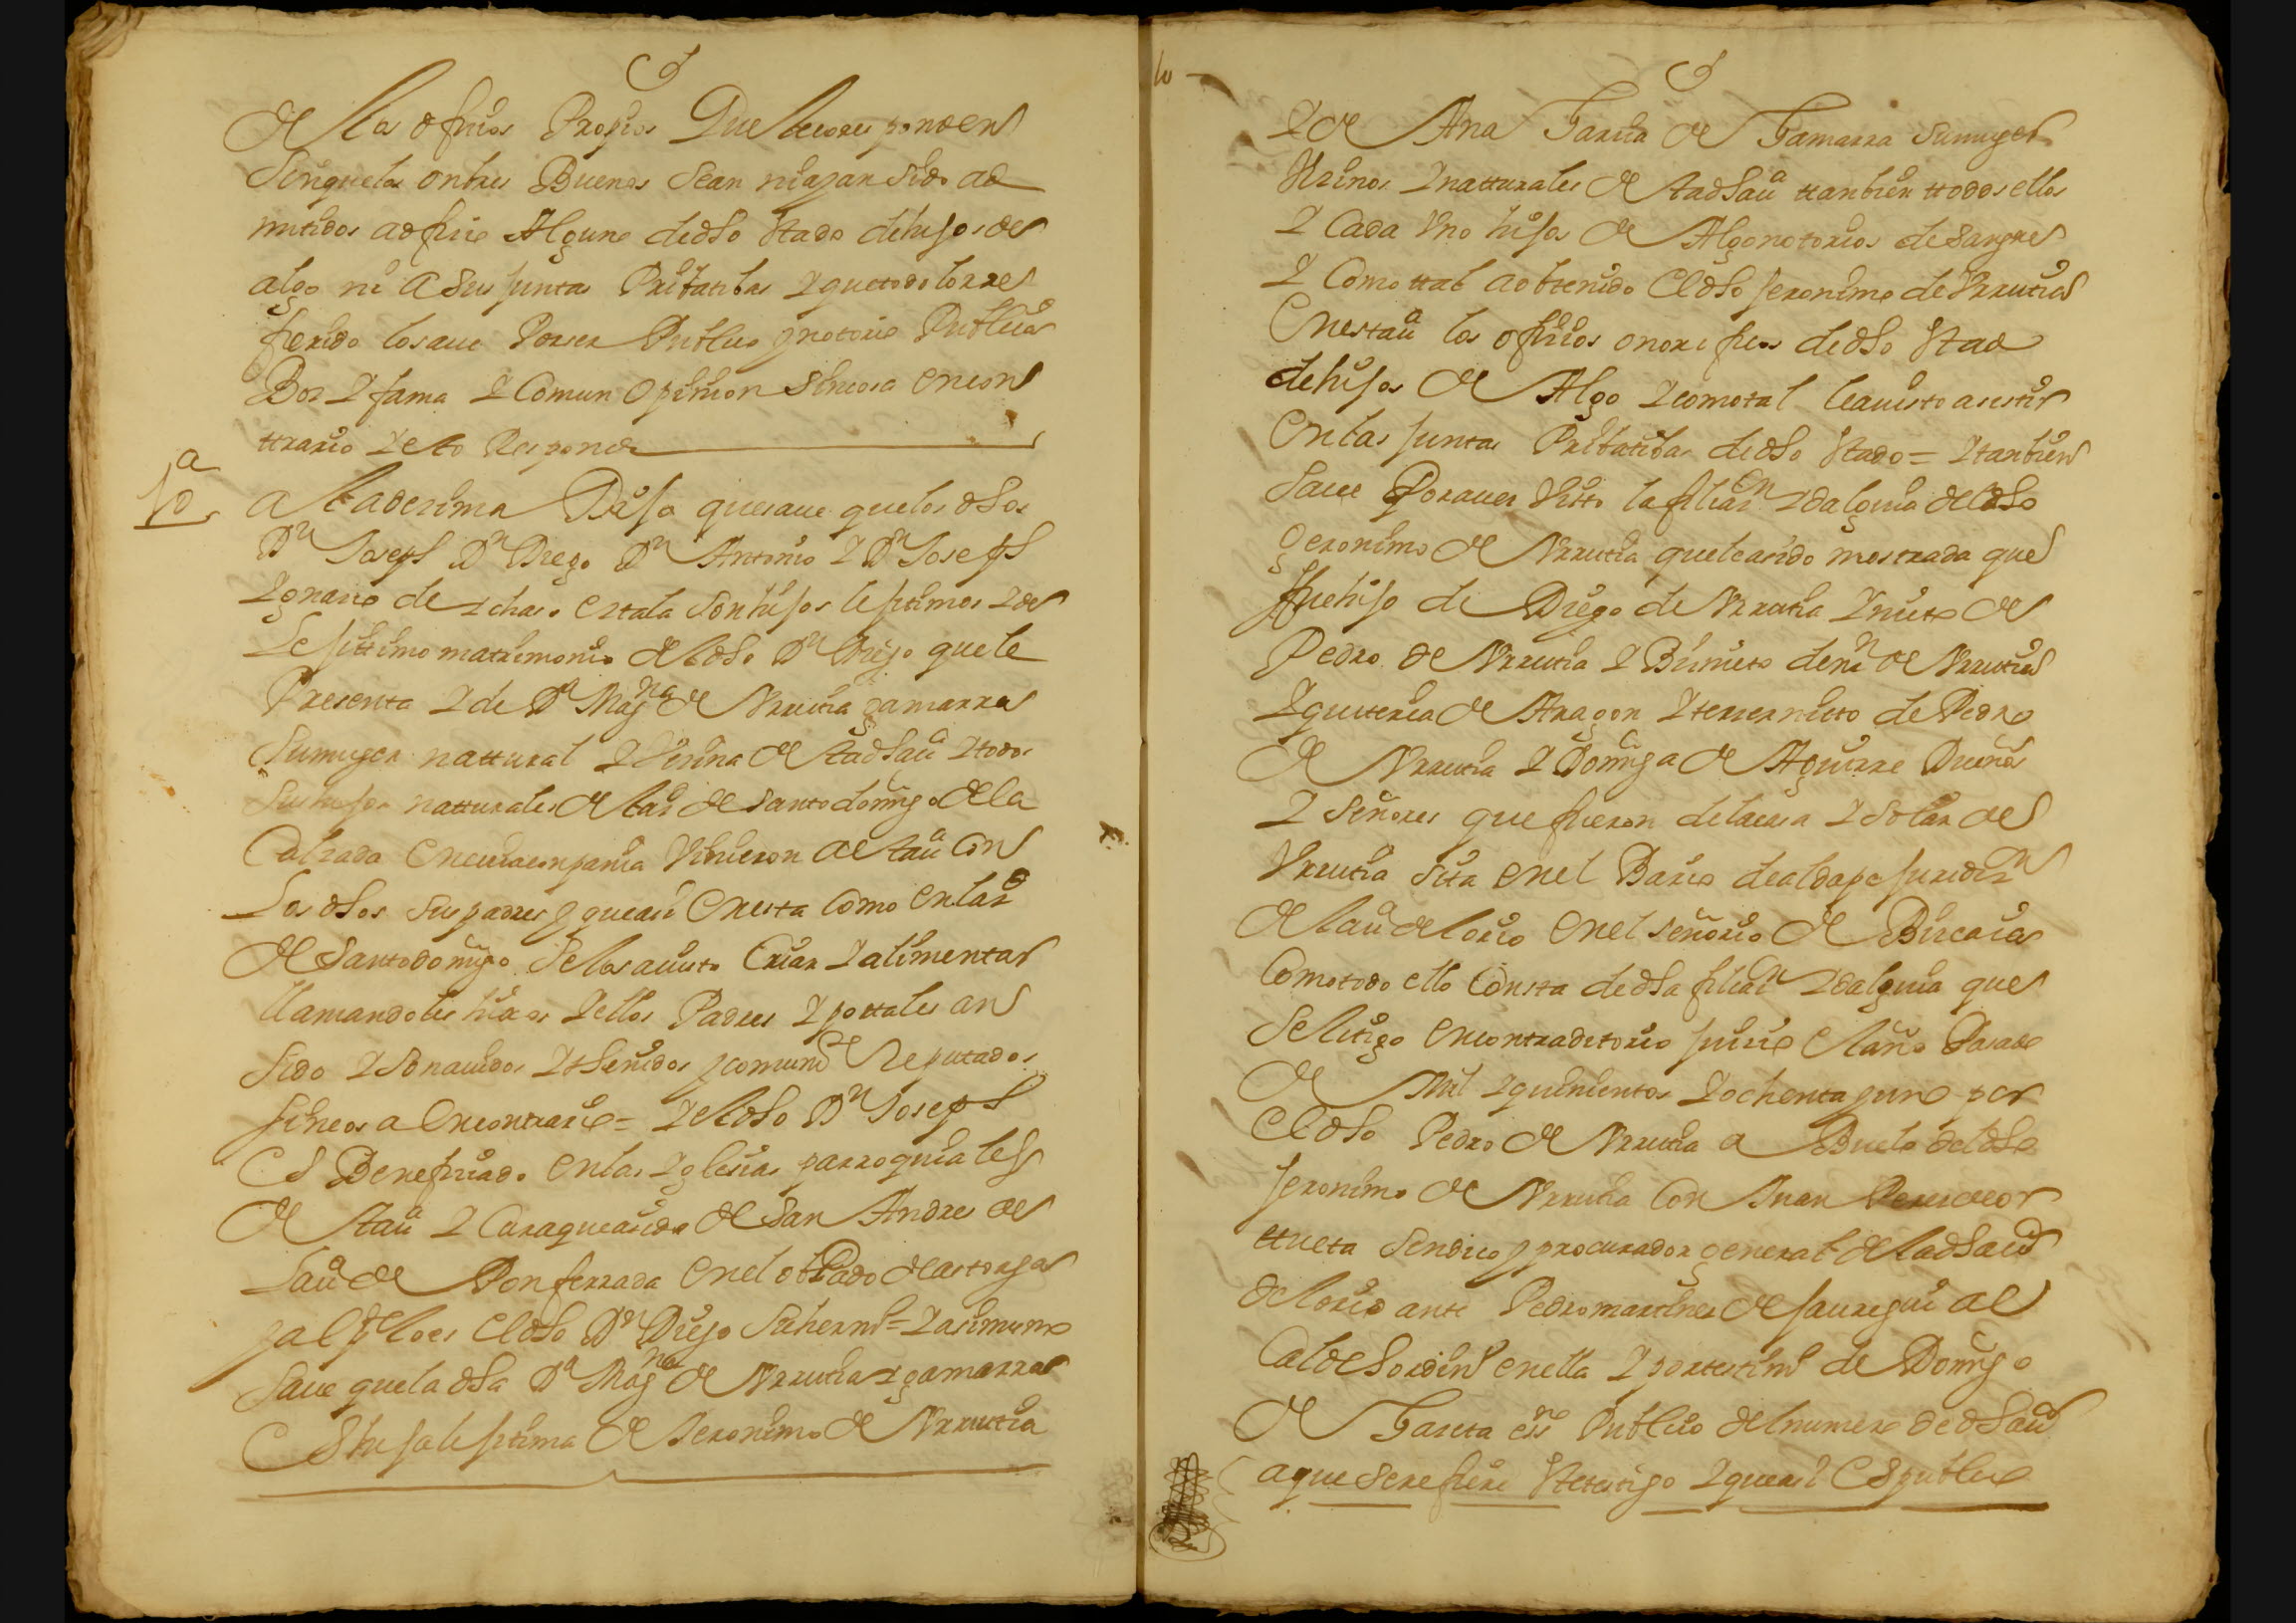 de los ofiçios Propios Que lecorresponden
Sinquela ontres Buenos Sean niayan Sido ad
mitidos aofiçio Alguno dedho Stado dehijos de
algo ni a Sus juntas Pribatibas Yquetodo lorre
ferido losaue Porser Publico ynotorio Publica
Boz Yfama YComun Opinion Sincosa encon
ttrario Yesto Responde
10ª
a la dezima Dijo quesaue quelos dhos
Dn Joseph Dn Diego Dn Antonio YDn Joseph
Ygnaçio de Ychaso Estala Sonhijos lejitimos Yde
Lejittimo matrimonio deldho Dn Diego quele
Presenta Yde Dª Magna de Vrrutia gamarra
Sumuger nattural YVeçina destadhauª Ytodos
Sushijos natturales delaz de Santodomigo dela
Calzada Encuiaconpania Vibieron destauª Con
Los dhos Suspadres yqueasi Enesta Como Enlaz
de Santodomigo Selosauisto Criar Yalimentar
llamandoles hijos Yellos Padres Yportales an
Sido YSonauidos Ythenidos ycomunte Reputados
sincosa Encontrario = Yeldho Dn Joseph
Es Benefiçiado Enlas Yglesias parroquiales
de stauª YCuraqueasido de San Andres de
Lauª de Ponferrada Enel obpado deastorga
yalpte loes Eldho Dn Diego Suhermo = Yasimismo
Saue quela dha Dª Magna de Vrrutia Ygamarra
Eshijalejitima de Jeronimo de Vrrutia
10
Yde Ana Garcia de Gamarra Sumuger
Vezinos Ynatturales destadhauª ttanbien ttodosellos
YCada Vno hijos de Algonotorios desangre
YComottal aobtenido Eldho Jeronimo deVrrutia
Enestauª los ofiçios onorifiços dedho Stado
dehijos de Algo Ycomotal leauisto asistir
Enlas juntas Pribatibas dedho Stado = Ytanbien
Saue Porauer Visto lafiliazn Ydalguia deldho
Geronimo de Vrrutia queleasido mostrada que
ffuehijo de Diego de Vrrutia Ynieto de
Pedro de Vrrutia YBisnieto demn de Vrrutia
Yquiteria de Aragon Yterzernieto de Pedro
de Vrrutia YDomiga de Aguirre Dueños
YSeñores quefueron delacasa YSolar de
Vrrutia Sita enel Bario dealdape juridizn
delauª delorio Enel señorio de Bizcaia
Comotodo ello Consta dedha filiazn Ydalguia que
Selitigo Encontraditorio juiçio Elaño Pasado
de Mil Yquinientos Yochenta yuno por
Eldho Pedro de Vrrutia a Buelo deldho
Jeronimo de Vrrutia Con Juan Perezdeor
ttueta Sindico yprocurador general deladhauª
delorio ante Pedromartinez de jauregui al
Caldehordino enella Yportestimo de Domigo
de Gareta essno Publico delnumero dedhauª
aque Serefiere Stetestigo Yqueasi Espublico